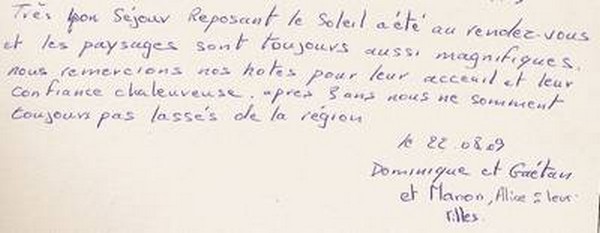 Très bon Séjour Reposant le Soleil a été au rendez-vous
et les paysages sont toujours aussi magnifiques.
nous remercions nos hotes pour leur acceuil et leur
confiance chaleureuse. apres 3 ans nous ne somment
toujours pas lassés de la région
le 22.08.09
Dominique et Gaétan
et Manon, Alice = leurs
filles.